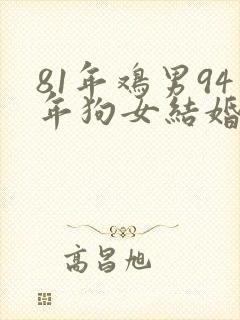 81年鸡男94
年狗女結婚
高昌旭